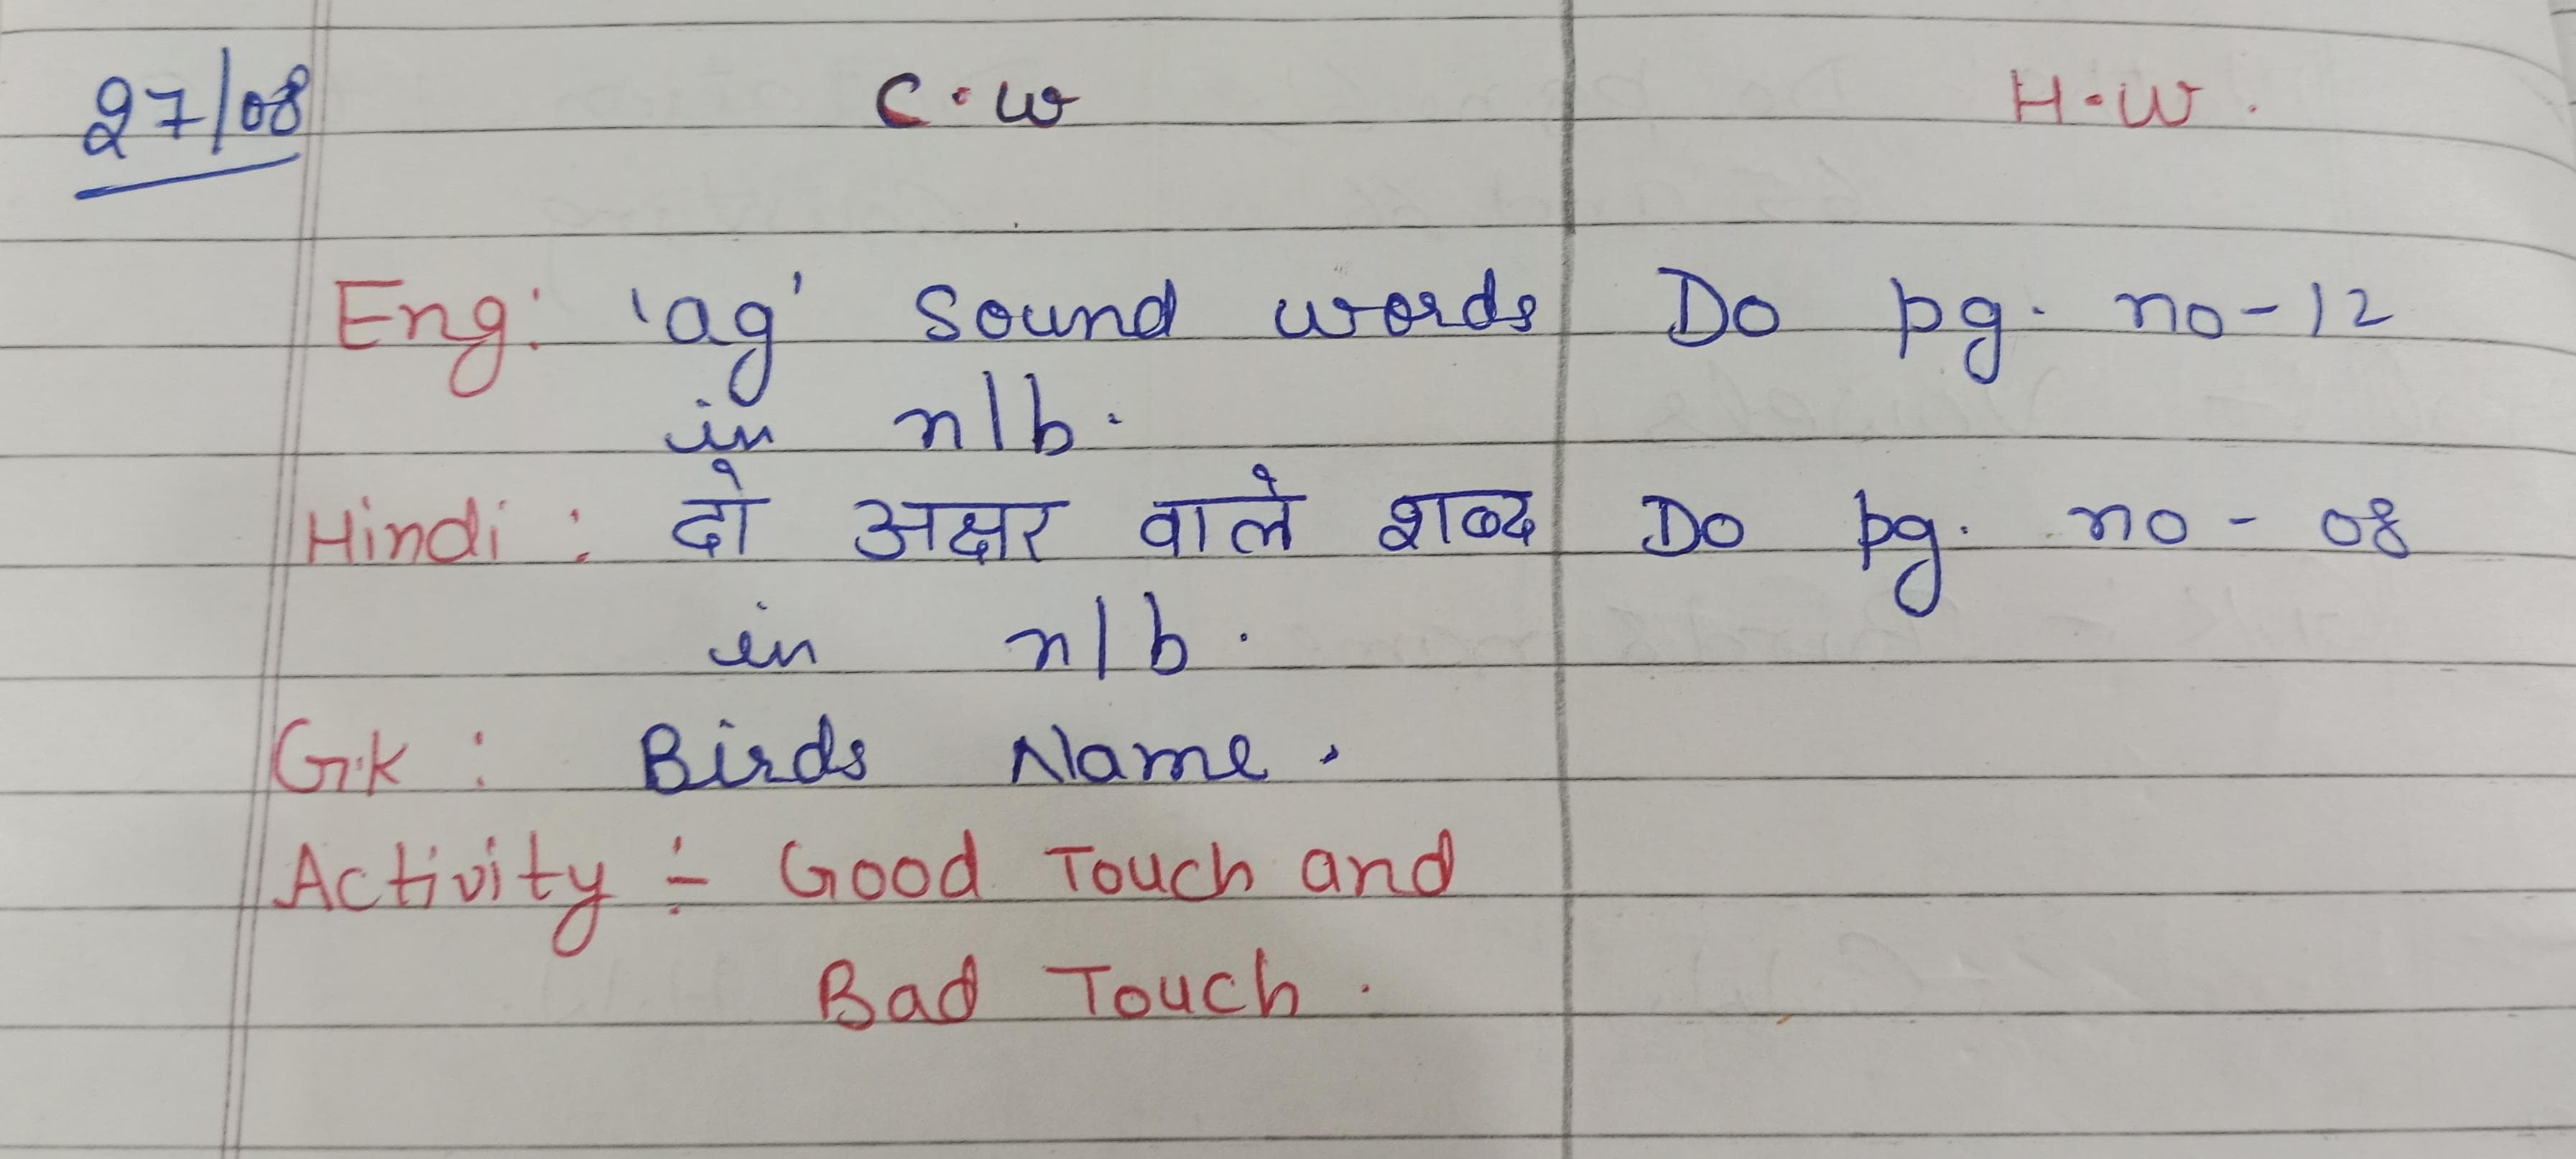 27/08 C.W H.W.
Eng: 'ag' Sound words Do pg. no-12
in n/b.
Hindi : दो अक्षर वाले शब्द Do pg. no - 08
in n/b.
G.K : Birds Name.
Activity :- Good Touch and
Bad Touch.